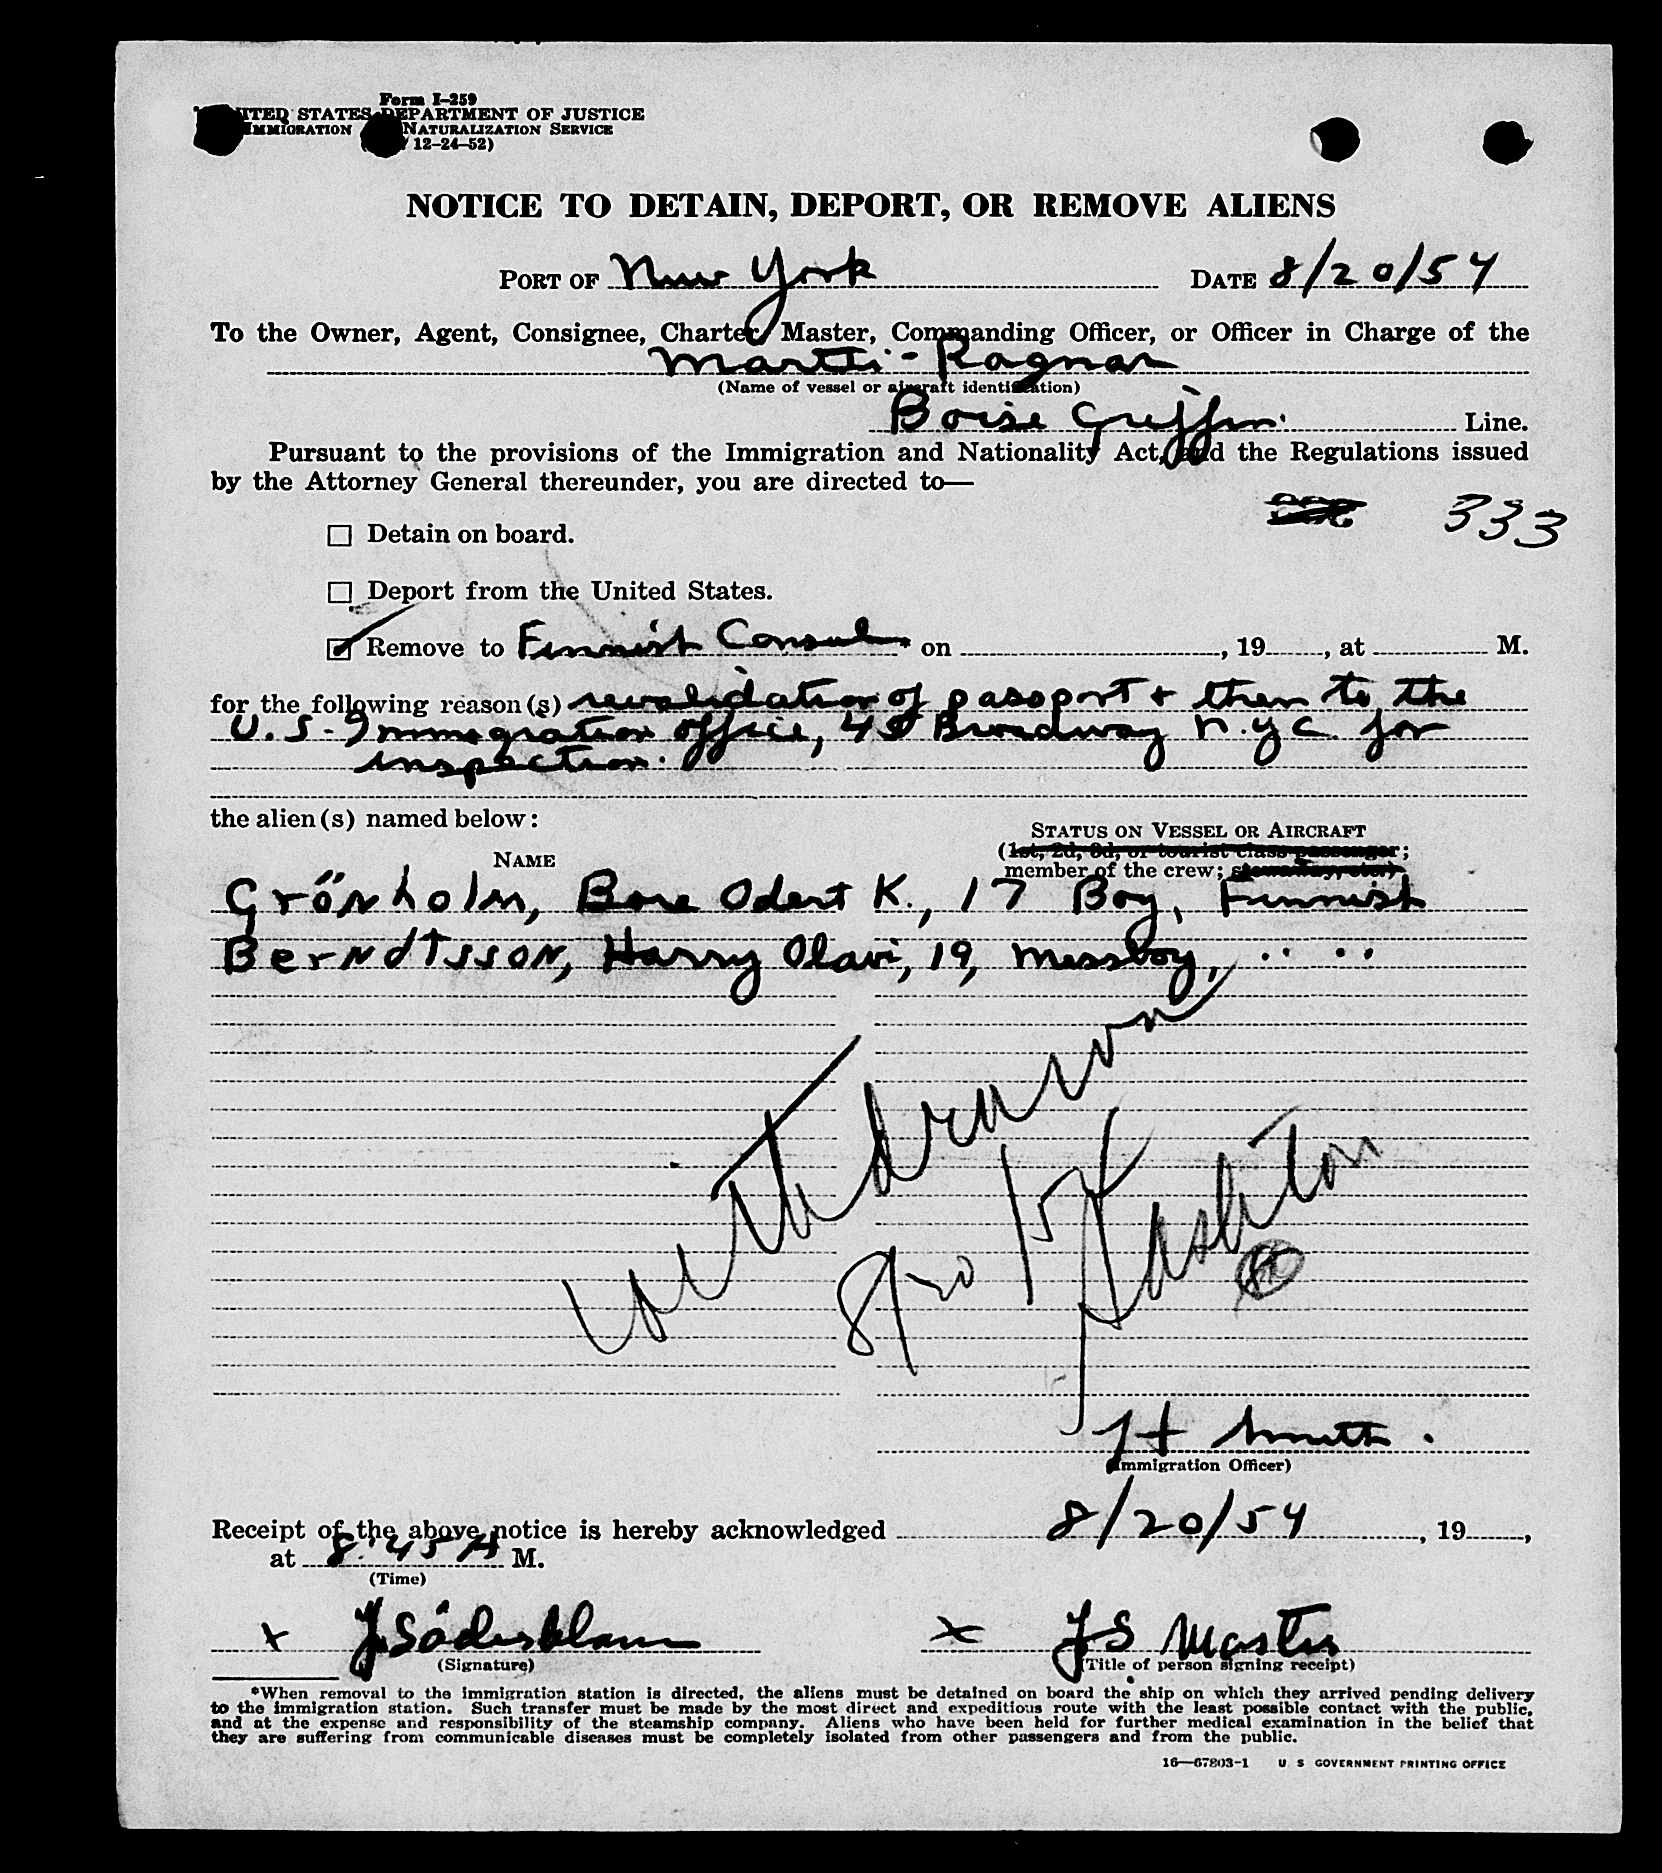 Form I-259
UNITED STATES DEPARTMENT OF JUSTICE
IMMIGRATION NATURALIZATION SERVICE
12-24-52)
NOTICE TO DETAIN, DEPORT, OR REMOVE ALIENS
PORT OF New York DATE 8/20/54
To the Owner, Agent, Consignee, Charter, Master, Commanding Officer, or Officer in Charge of the
Martti-Ragnar
(Name of vessel or aircraft identification)
Boise Griffin Line.
Pursuant to the provisions of the Immigration and Nationality Act, and the Regulations issued
by the Attorney General thereunder, you are directed to—
333
☐ Detain on board.
☐ Deport from the United States.
☑ Remove to Finnish Consul on , 19 , at M.
for the following reason(s) revalidation of passport + then to the
U.S. Immigration office, 45 Broadway N.Y.C. for
inspection.
the alien(s) named below:
STATUS ON VESSEL OR AIRCRAFT
NAME (1st, 2d, 3d, or tourist class passenger;
member of the crew;
Grönholm, Bore Odert K., 17 Boy, Finnish
Berndtsson, Harry Olavi, 19, messboy, " "
withdrawn
8/20/54
JH Smith.
(Immigration Officer)
Receipt of the above notice is hereby acknowledged 8/20/54, 19 ,
at 8:45 A M.
(Time)
x J Söderblom x JS Master
(Signature) (Title of person signing receipt)
*When removal to the immigration station is directed, the aliens must be detained on board the ship on which they arrived pending delivery
to the immigration station. Such transfer must be made by the most direct and expeditious route with the least possible contact with the public,
and at the expense and responsibility of the steamship company. Aliens who have been held for further medical examination in the belief that
they are suffering from communicable diseases must be completely isolated from other passengers and from the public.
16—67803-1 U S GOVERNMENT PRINTING OFFICE